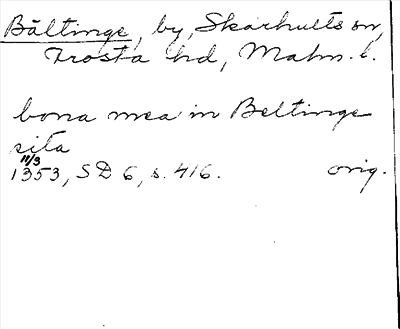 Bältinge, by, Skarhults sn,
Frosta hd, Malm. l.
bona mea in Beltinge
sita
11/3
1353, SD 6, s. 416. orig.